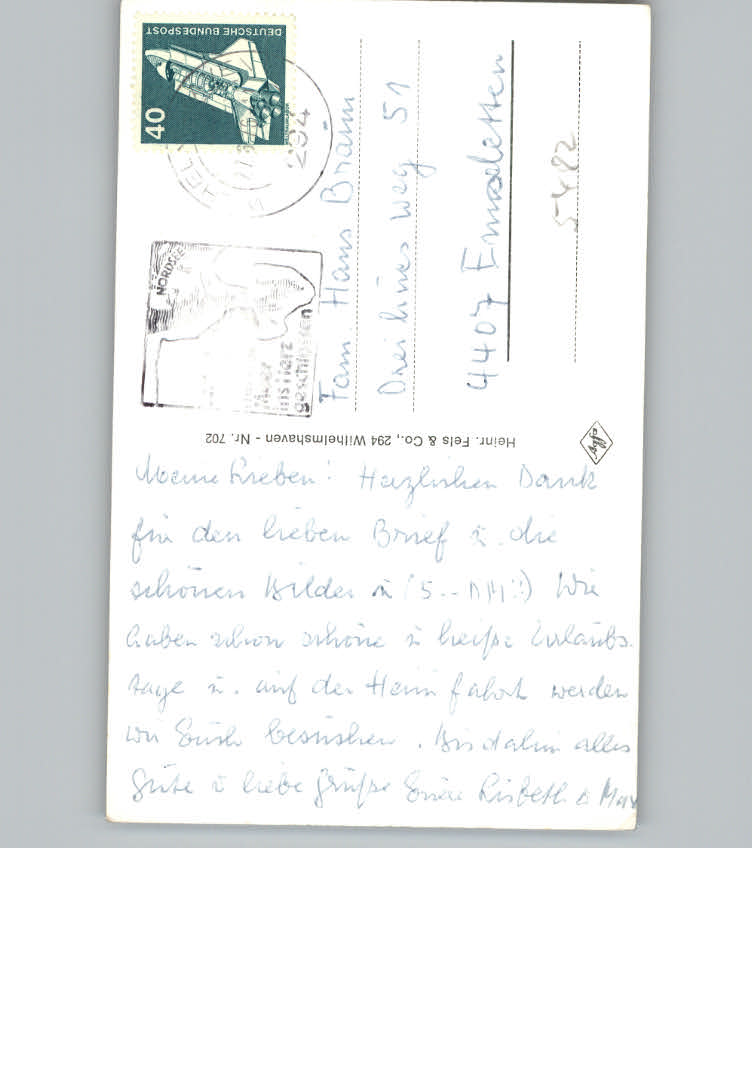 DEUTSCHE BUNDESPOST
40
294
NORDSEE
ins Herz
geschlossen
Fam. Hans Bramm
Dreihues weg 51
4407 Emsdetten
5482
Heinr. Fels & Co., 294 Wilhelmshaven - Nr. 702
Agfa
Meine Lieben! Herzlichen Dank
für den lieben Brief u. die
schönen Bilder u (5.-- DM!!) Wir
haben schon schöne u heiße Urlaubs-
tage u. auf der Heimfahrt werden
wir Euch besuchen. Bis dahin alles
Gute u liebe Grüße Eure Lisbeth u Max